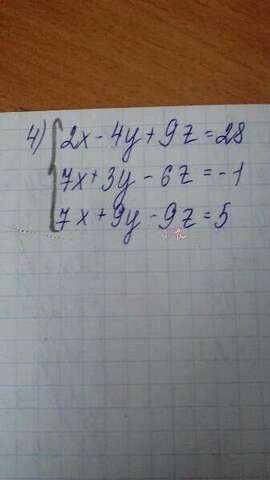 4) 2x - 4y + 9z = 28
7x + 3y - 6z = -1
7x + 9y - 9z = 5